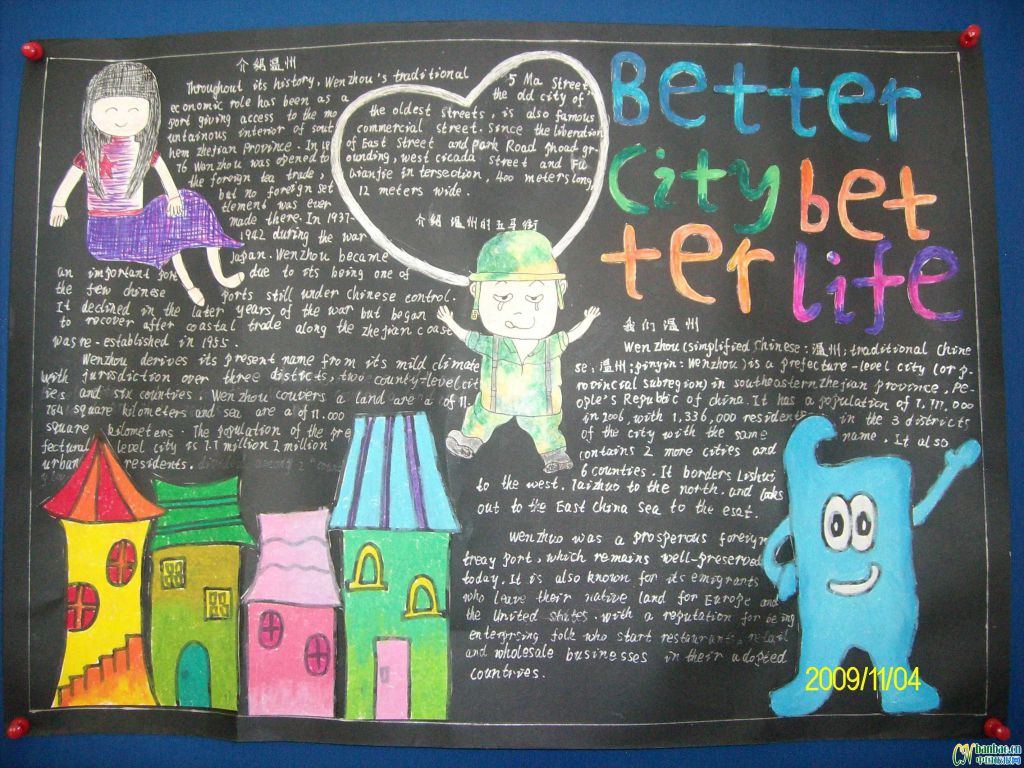 介绍温州
Throughout its history, Wenzhou's traditional
economic role has been as a
port giving access to the mo
untainous interior of sout
hern zhejian province. In 18
76 Wenzhou was opened to
the foreign tea trade,
but no foreign set
tlement was ever
made there. In 1937-
1942 during the war
Japan. Wenzhou became
an important port due to its being one of
the few chinese ports still under chinese control.
It declined in the later years of the war but began
to recover after coastal trade along the zhejian coast
was re-established in 1955.
Wenzhou derives its present name from its mild climate
with jurisdiction over three districts, two county-level cit
ies and six countries. Wenzhou couvers a land are a of 11.
784 square kilometers and sea are a of 11.000
square kilometers. The population of the pre
fectural level city is 7.7 million 2 million
urban residents.
5 Ma Street
the old city of
the oldest streets, is also famous
commercial street. Since the liberation
of East Street and park Road proad gr-
ounding, west cicada Street and Fu
Qianjie in tersection, 400 meters long,
12 meters wide.
介绍温州的五马街
Better
City bet
ter life
我们温州
Wenzhou (simplified chinese: 温州; traditional chine
se, 温州; pinyin: Wenzhou) is a prefecture-level city (or p-
rovincial subregion) in southeastern zhejian province, Pe-
ople's Republic of china. It has a population of 7,
in 2006, with 1,336,000 residents in the 3 districts
of the city with the same name. It also
contains 2 more cities and
6 countries. It borders Lishui
to the west. Taizhuo to the north. and looks
out to the East China Sea to the esat.
Wenzhuo was a prosperous foreign
treay port, which remains well-preserved
today. It is also known for its emigrants
who leave their native land for Europe and
the United states. with a reputation for being
enterprsing folk who start restaurants, retail
and wholesale businesses in their adopted
countries.
2009/11/04
banbao.cn